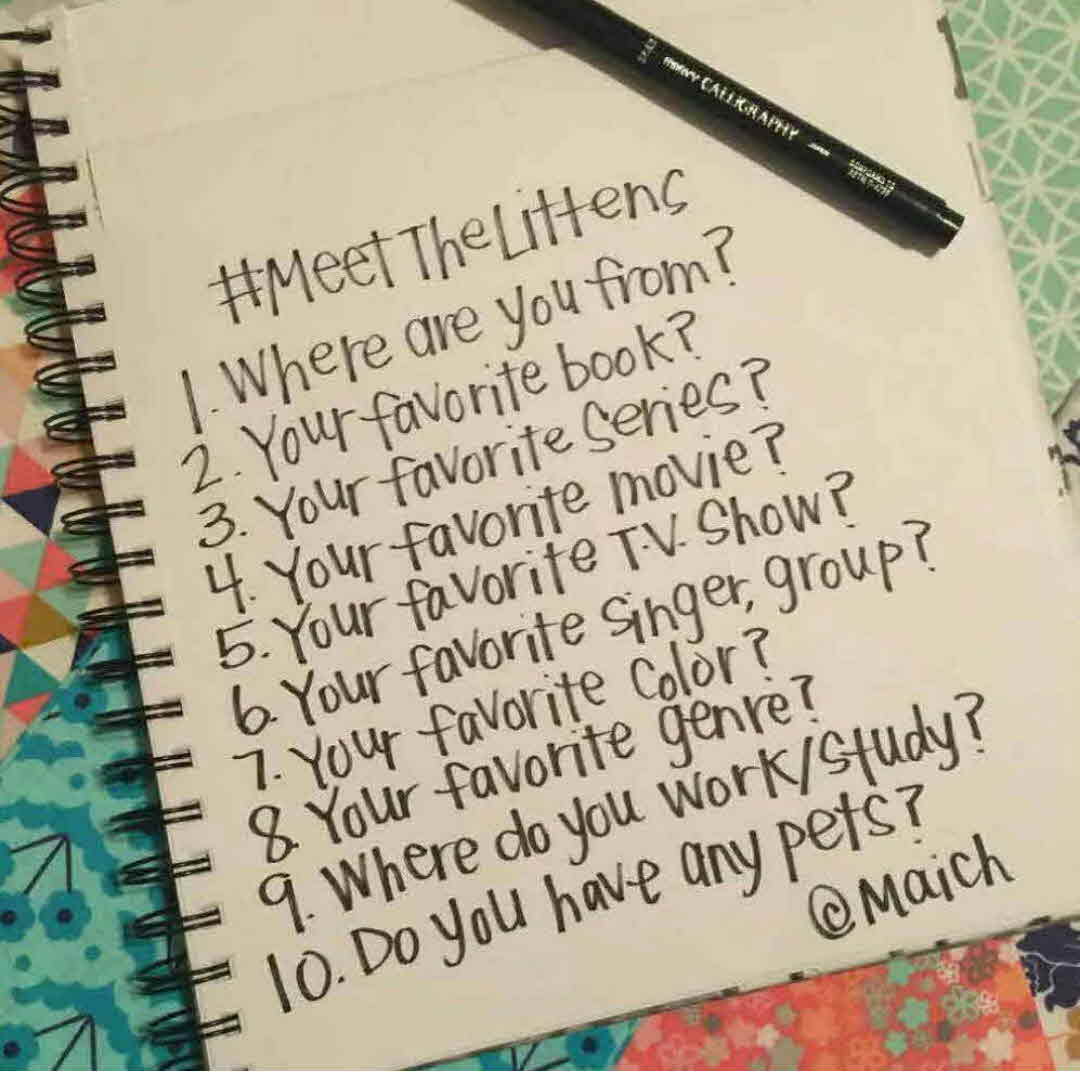 marvy CALLIGRAPHY
#MeetTheLittens
1. Where are you from?
2. Your favorite book?
3. Your favorite series?
4. Your favorite movie?
5. Your favorite T.V. Show?
6. Your favorite singer, group?
7. Your favorite color?
8. Your favorite genre?
9. Where do you work/study?
10. Do you have any pets?
@Maich